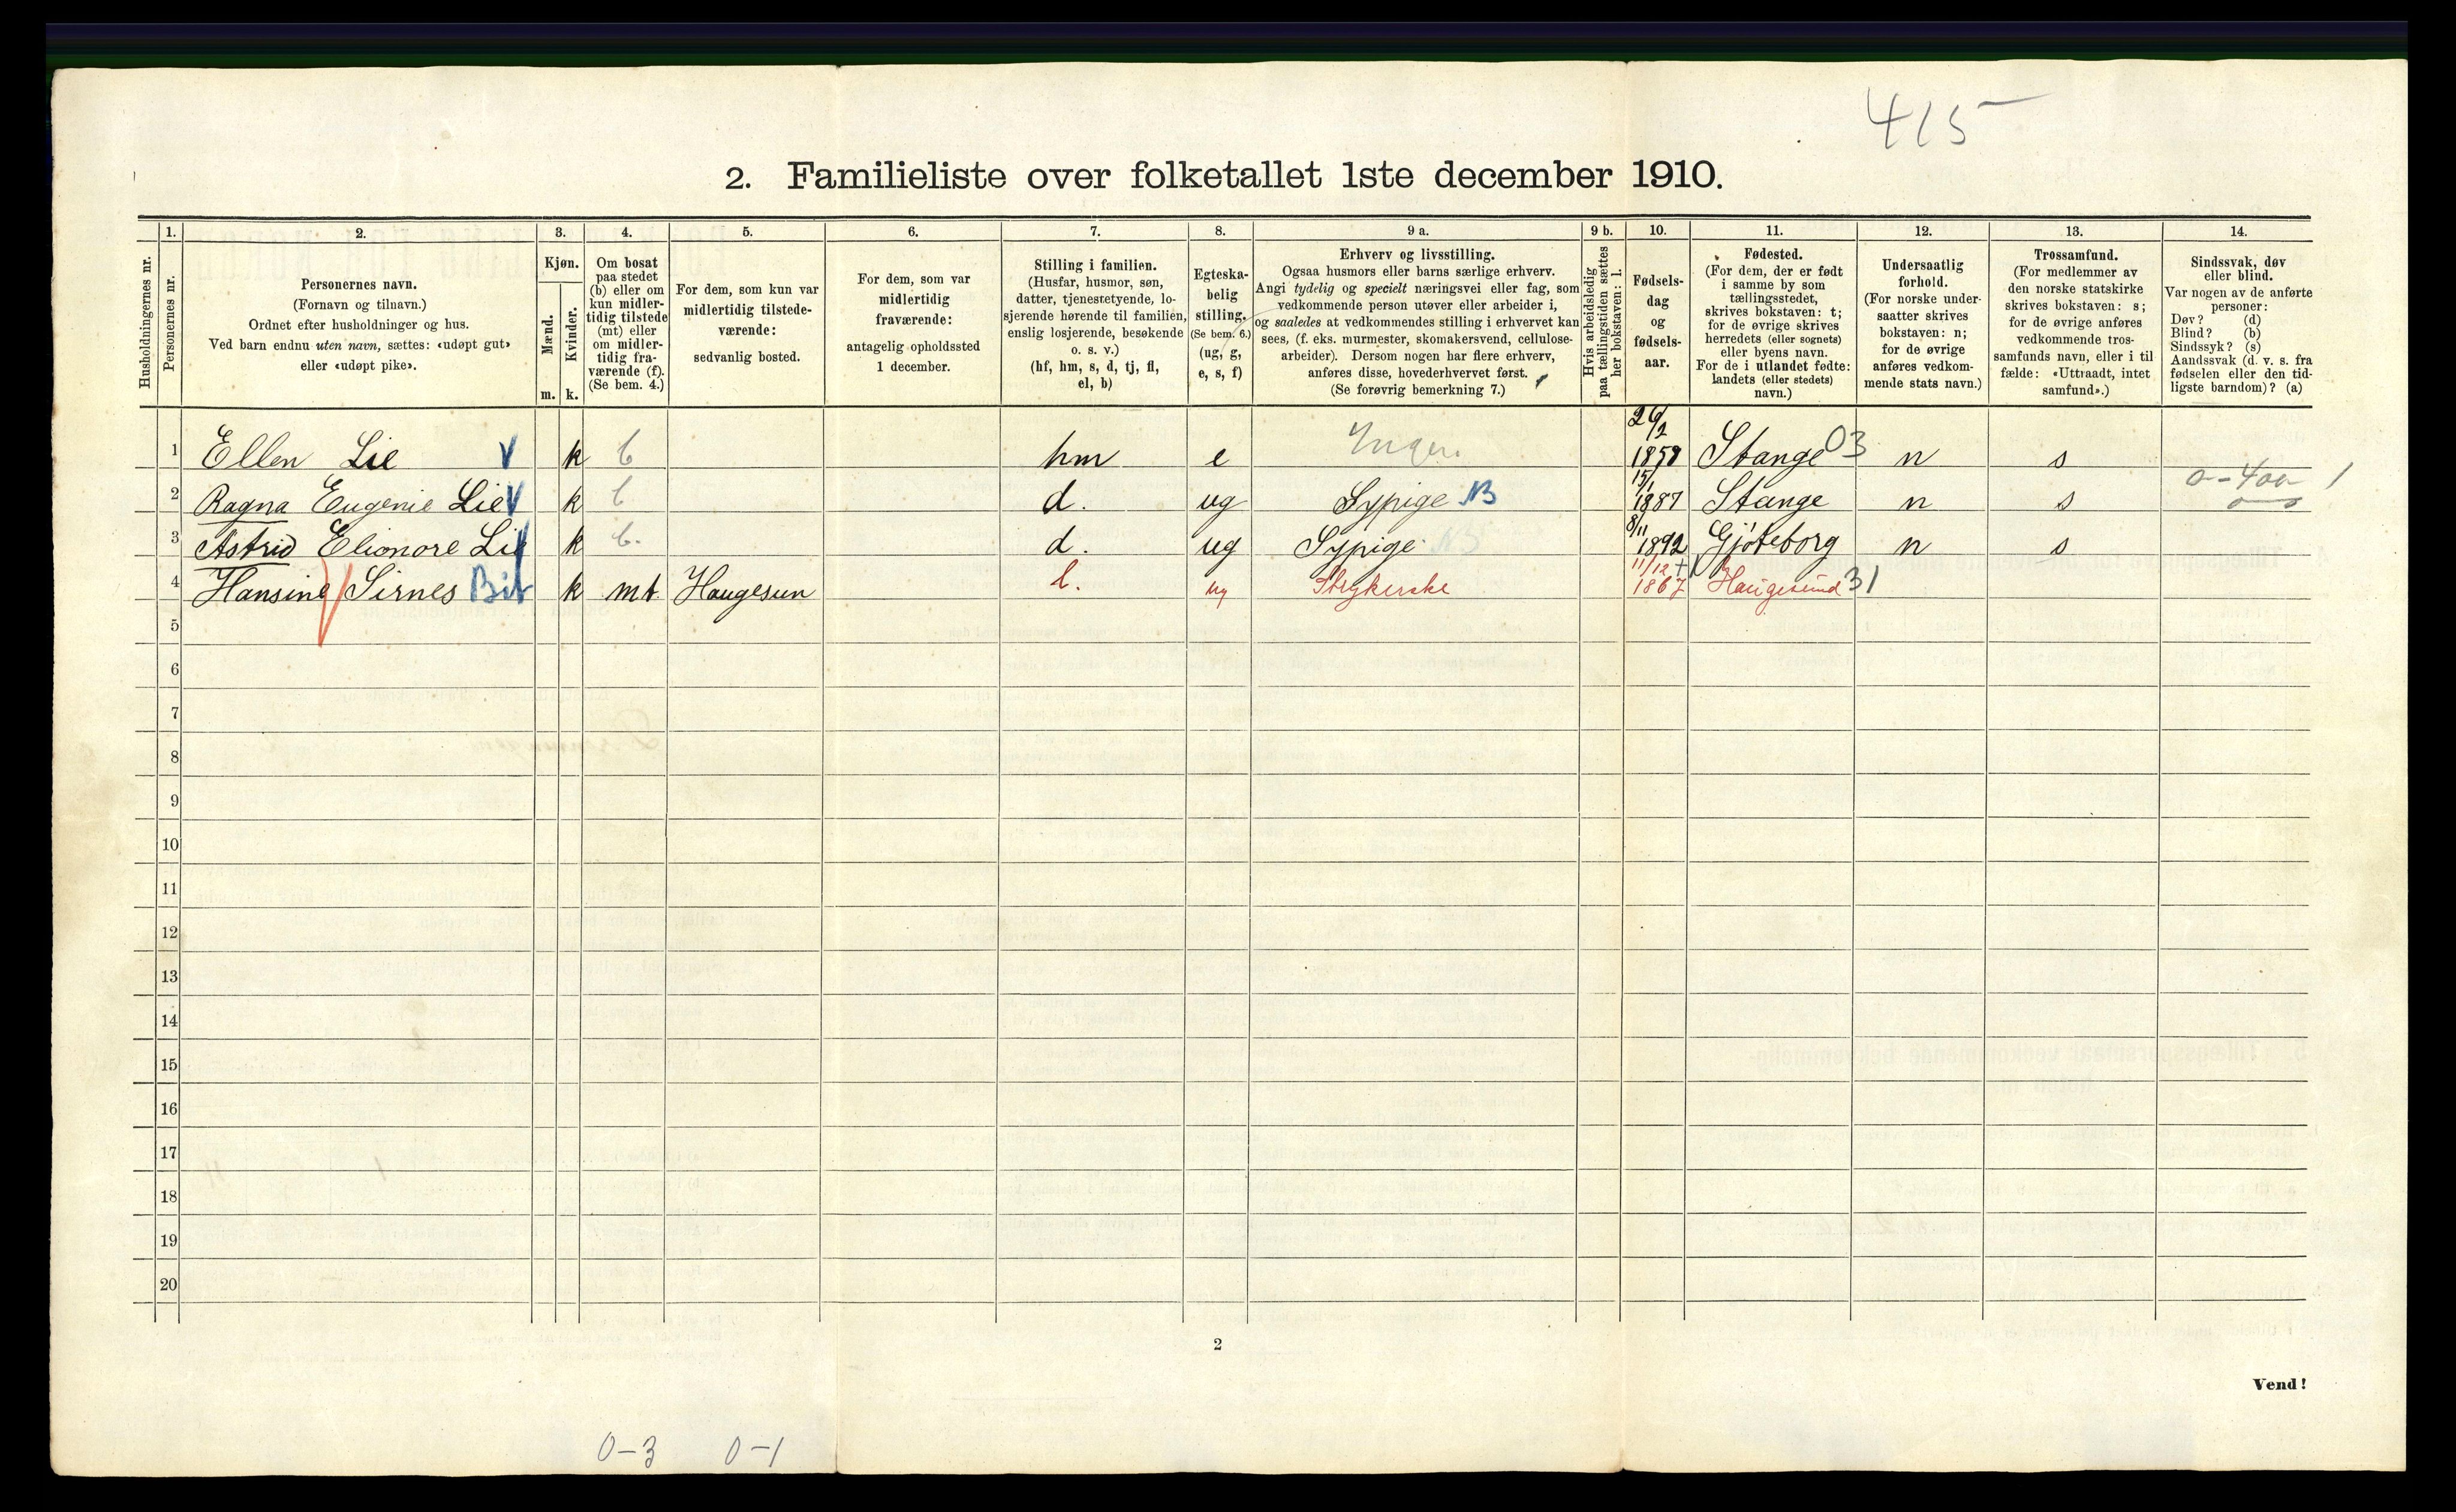 415
2. Familieliste over folketallet 1ste december 1910.
1. 2. 3. 4. 5. 6. 7. 8. 9 a. 9 b. 10. 11. 12. 13. 14.
Husholdningernes nr.
Personernes nr.
Personernes navn.
(Fornavn og tilnavn.)
Ordnet efter husholdninger og hus.
Ved barn endnu uten navn, sættes: «udøpt gut»
eller «udøpt pike».
Kjøn.
Mænd.
Kvinder.
m. k.
Om bosat
paa stedet
(b) eller om
kun midler-
tidig tilstede
(mt) eller
om midler-
tidig fra-
værende (f).
(Se bem. 4.)
For dem, som kun var
midlertidig tilstede-
værende:
sedvanlig bosted.
For dem, som var
midlertidig
fraværende:
antagelig opholdssted
1 december.
Stilling i familien.
(Husfar, husmor, søn,
datter, tjenestetyende, lo-
sjerende hørende til familien,
enslig losjerende, besøkende
o. s. v.)
(hf, hm, s, d, tj, fl,
el, b)
Egteska-
belig
stilling.
(Se bem. 6.)
(ug, g,
e, s, f)
Erhverv og livsstilling.
Ogsaa husmors eller barns særlige erhverv.
Angi tydelig og specielt næringsvei eller fag, som
vedkommende person utøver eller arbeider i,
og saaledes at vedkommendes stilling i erhvervet kan
sees, (f. eks. murmester, skomakersvend, cellulose-
arbeider). Dersom nogen har flere erhverv,
anføres disse, hovederhvervet først.
(Se forøvrig bemerkning 7.)
Hvis arbeidsledig
paa tællingstiden sættes
her bokstaven: l.
Fødsels-
dag
og
fødsels-
aar.
Fødested.
(For dem, der er født
i samme by som
tællingsstedet,
skrives bokstaven: t;
for de øvrige skrives
herredets (eller sognets)
eller byens navn.
For de i utlandet fødte:
landets (eller stedets)
navn.)
Undersaatlig
forhold.
(For norske under-
saatter skrives
bokstaven: n;
for de øvrige
anføres vedkom-
mende stats navn.)
Trossamfund.
(For medlemmer av
den norske statskirke
skrives bokstaven: s;
for de øvrige anføres
vedkommende tros-
samfunds navn, eller i til
fælde: «Uttraadt, intet
samfund».)
Sindssvak, døv
eller blind.
Var nogen av de anførte
personer:
Døv? (d)
Blind? (b)
Sindssyk? (s)
Aandssvak (d. v. s. fra
fødselen eller den tid-
ligste barndom)? (a)
1 Ellen Lie V k b hm e Ingen. 26/2 1858 Stange 03 n s
2 Ragna Eugenie Lie V k b d. ug Sypige NB 15/1 1887 Stange n s 1
3 Astrid Elionore Lie k b. d. ug Sypige NB 8/11 1892 Gjøteborg n s
4 Hansine Sirnes Bib k mt Haugesun l. ug Strykerske 11/12 1867 + Haugesund 31
5
6
7
8
9
10
11
12
13
14
15
16
17
18
19
20
2
Vend!
0-3 0-1